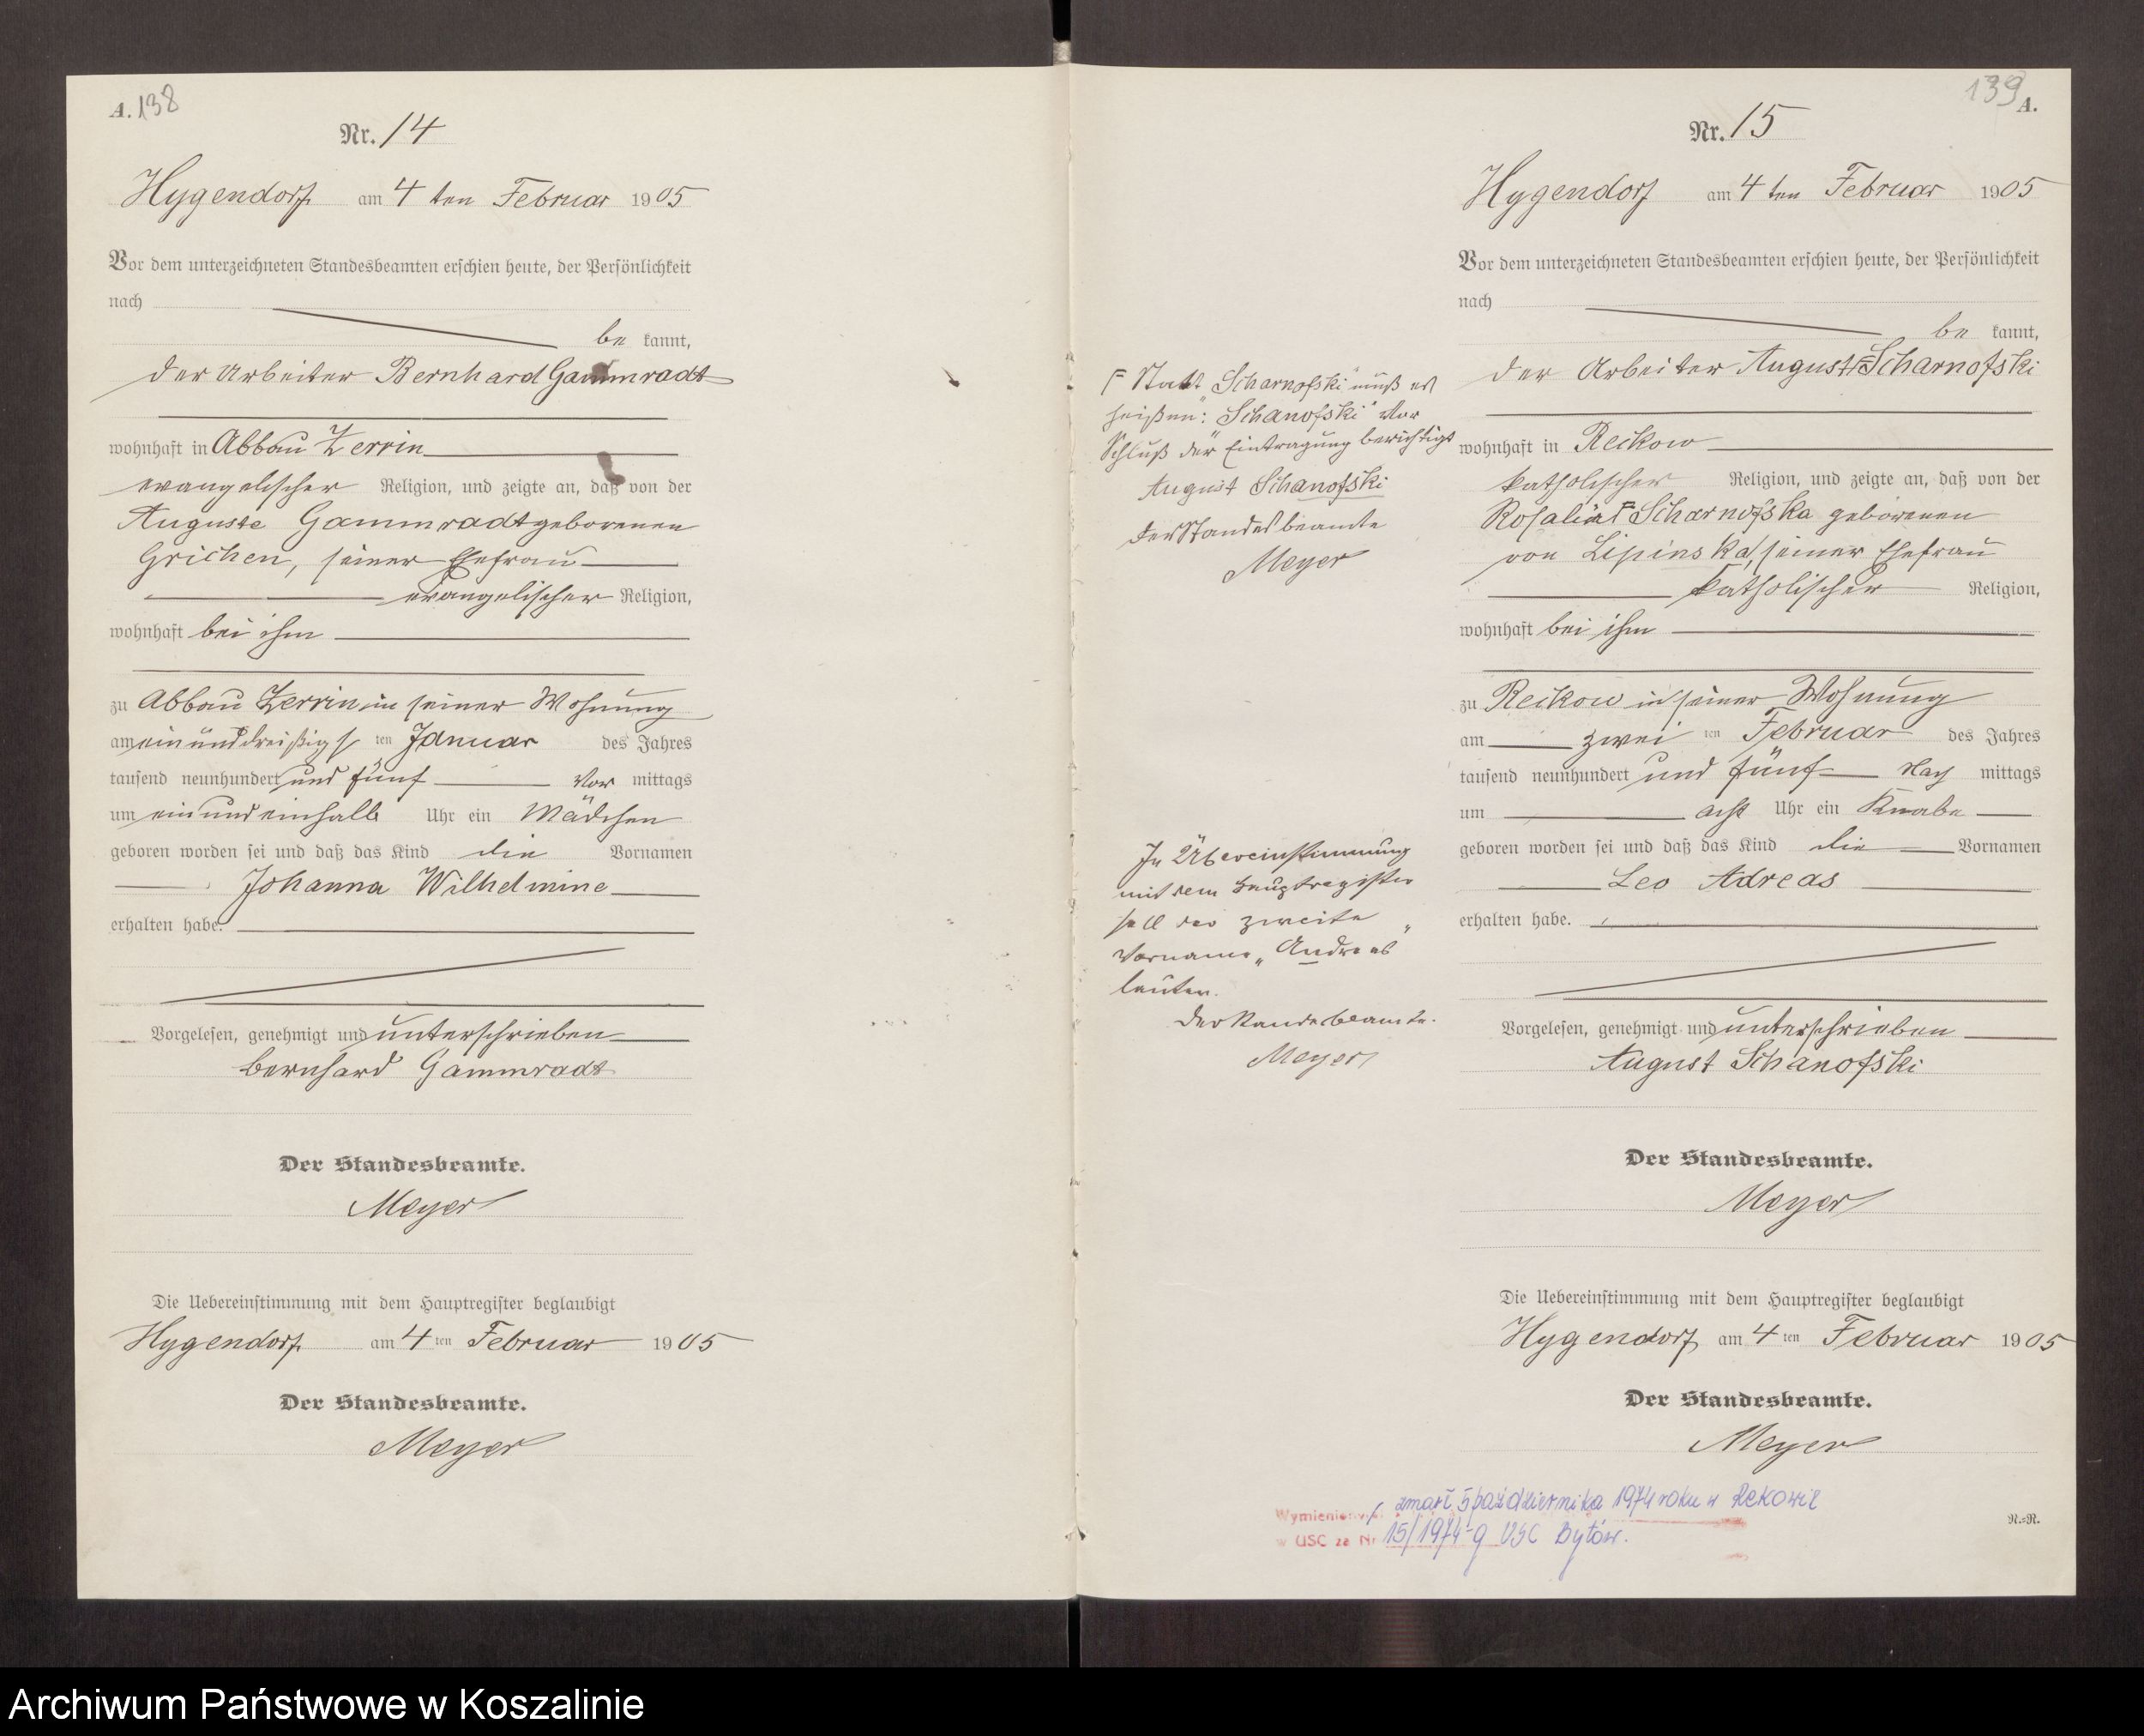 A. 138
Nr. 14
Hygendorf am 4 ten Februar 1905
Vor dem unterzeichneten Standesbeamten erschien heute, der Persönlichkeit
nach
be kannt,
der Arbeiter Bernhard Gammradt
wohnhaft in Abbau Zerrin
evangelischer Religion, und zeigte an, daß von der
Auguste Gammradt geborenen
Grichen, seiner Ehefrau
evangelischer Religion,
wohnhaft bei ihm
zu Abbau Zerrin in seiner Wohnung
am einunddreißigs ten Januar des Jahres
tausend neunhundert und fünf Vor mittags
um ein und einhalb Uhr ein Mädchen
geboren worden sei und daß das Kind die Vornamen
Johanna Wilhelmine
erhalten habe.
Vorgelesen, genehmigt und unterschrieben
Bernhard Gammradt
Der Standesbeamte.
Meyer
Die Uebereinstimmung mit dem Hauptregister beglaubigt
Hygendorf am 4 ten Februar 1905
Der Standesbeamte.
Meyer
139 A.
Nr. 15
Hygendorf am 4 ten Februar 1905
Vor dem unterzeichneten Standesbeamten erschien heute, der Persönlichkeit
nach
be kannt,
der Arbeiter August F Scharnofski
wohnhaft in Reckow
katholischer Religion, und zeigte an, daß von der
Rosalia F Scharnofska geborenen
von Lipinska, seiner Ehefrau
katholischer Religion,
wohnhaft bei ihm
zu Reckow in seiner Wohnung
am zwei ten Februar des Jahres
tausend neunhundert und fünf Nach mittags
um acht Uhr ein Knabe
geboren worden sei und daß das Kind die Vornamen
Leo Adreas
erhalten habe.
Vorgelesen, genehmigt und unterschrieben
August Schanofski
Der Standesbeamte.
Meyer
Die Uebereinstimmung mit dem Hauptregister beglaubigt
Hygendorf am 4 ten Februar 1905
Der Standesbeamte.
Meyer
F Statt "Scharnofski" muß es
heißen: "Schanofski" Vor
Schluß der Eintragung berichtigt
August Schanofski
Der Standesbeamte
Meyer
In Übereinstimmung
mit dem Hauptregister
soll der zweite
Vorname „Andreas"
lauten.
Der Standesbeamte.
Meyer
Wymieniony zmarł 5 października 1974 roku w Rekowie
w USC za Nr 15/1974-g USC Bytów.
R.=R.
Archiwum Państwowe w Koszalinie